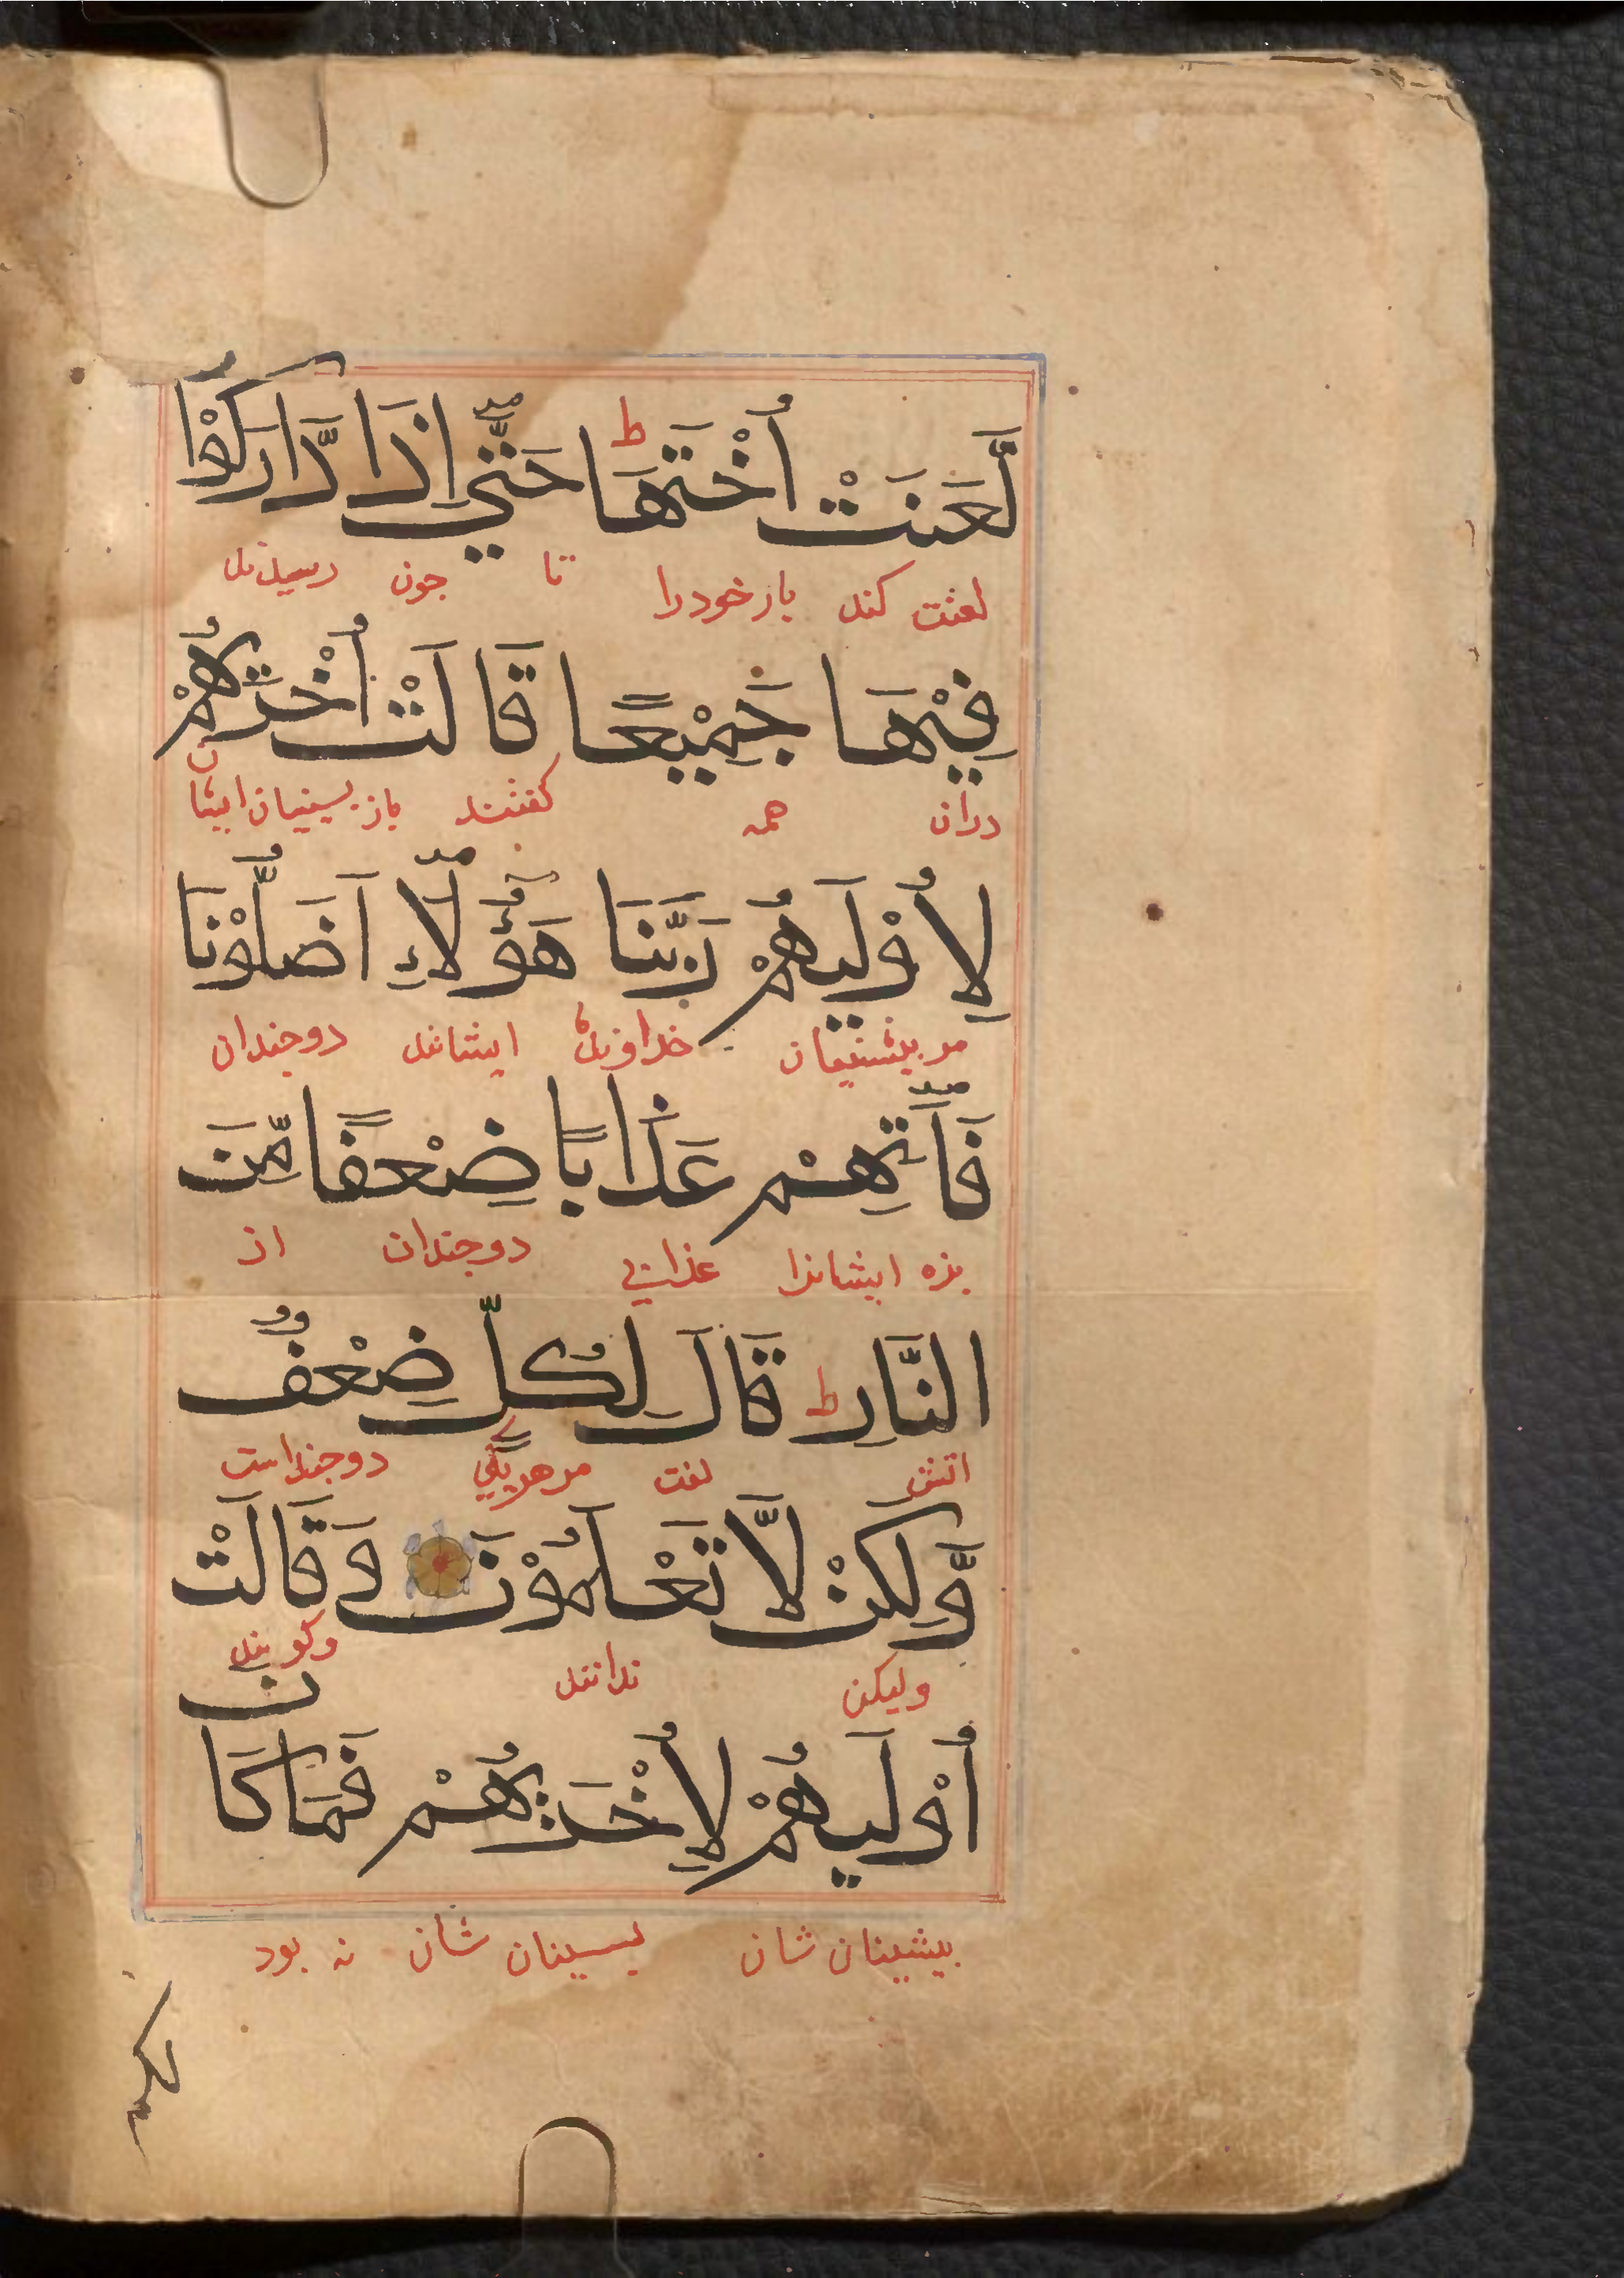 لَّعَنَتْ أُخْتَهَا ط حَتّٰي اِذَا ادَّارَكُوْا
لعنت كند يار خود را تا جون رسيدند
فِيْهَا جَمِيْعًا قَالَتْ أُخْرٰىهُمْ
دران همه كفتند باز پسينيان ايشان
لِاُوْلٰىهُمْ رَبَّنَا هٰٓؤُلَآءِ اَضَلُّوْنَا
مر پيشينيان خداوندا ايشانند دوجندان
فَاٰتِهِمْ عَذَابًا ضِعْفًا مِّنَ
بده ايشانرا عذابي دوجندان از
النَّارِ ط قَالَ لِكُلٍّ ضِعْفٌ
اتش كفت مر هر يكي دوجنداست
وَّلٰكِنْ لَّا تَعْلَمُوْنَ وَقَالَتْ
وليكن ندانند وكويند
أُوْلٰىهُمْ لِاُخْرٰىهُمْ فَمَا كَانَ
پيشينان شان پسينان شان نه بود
لكم